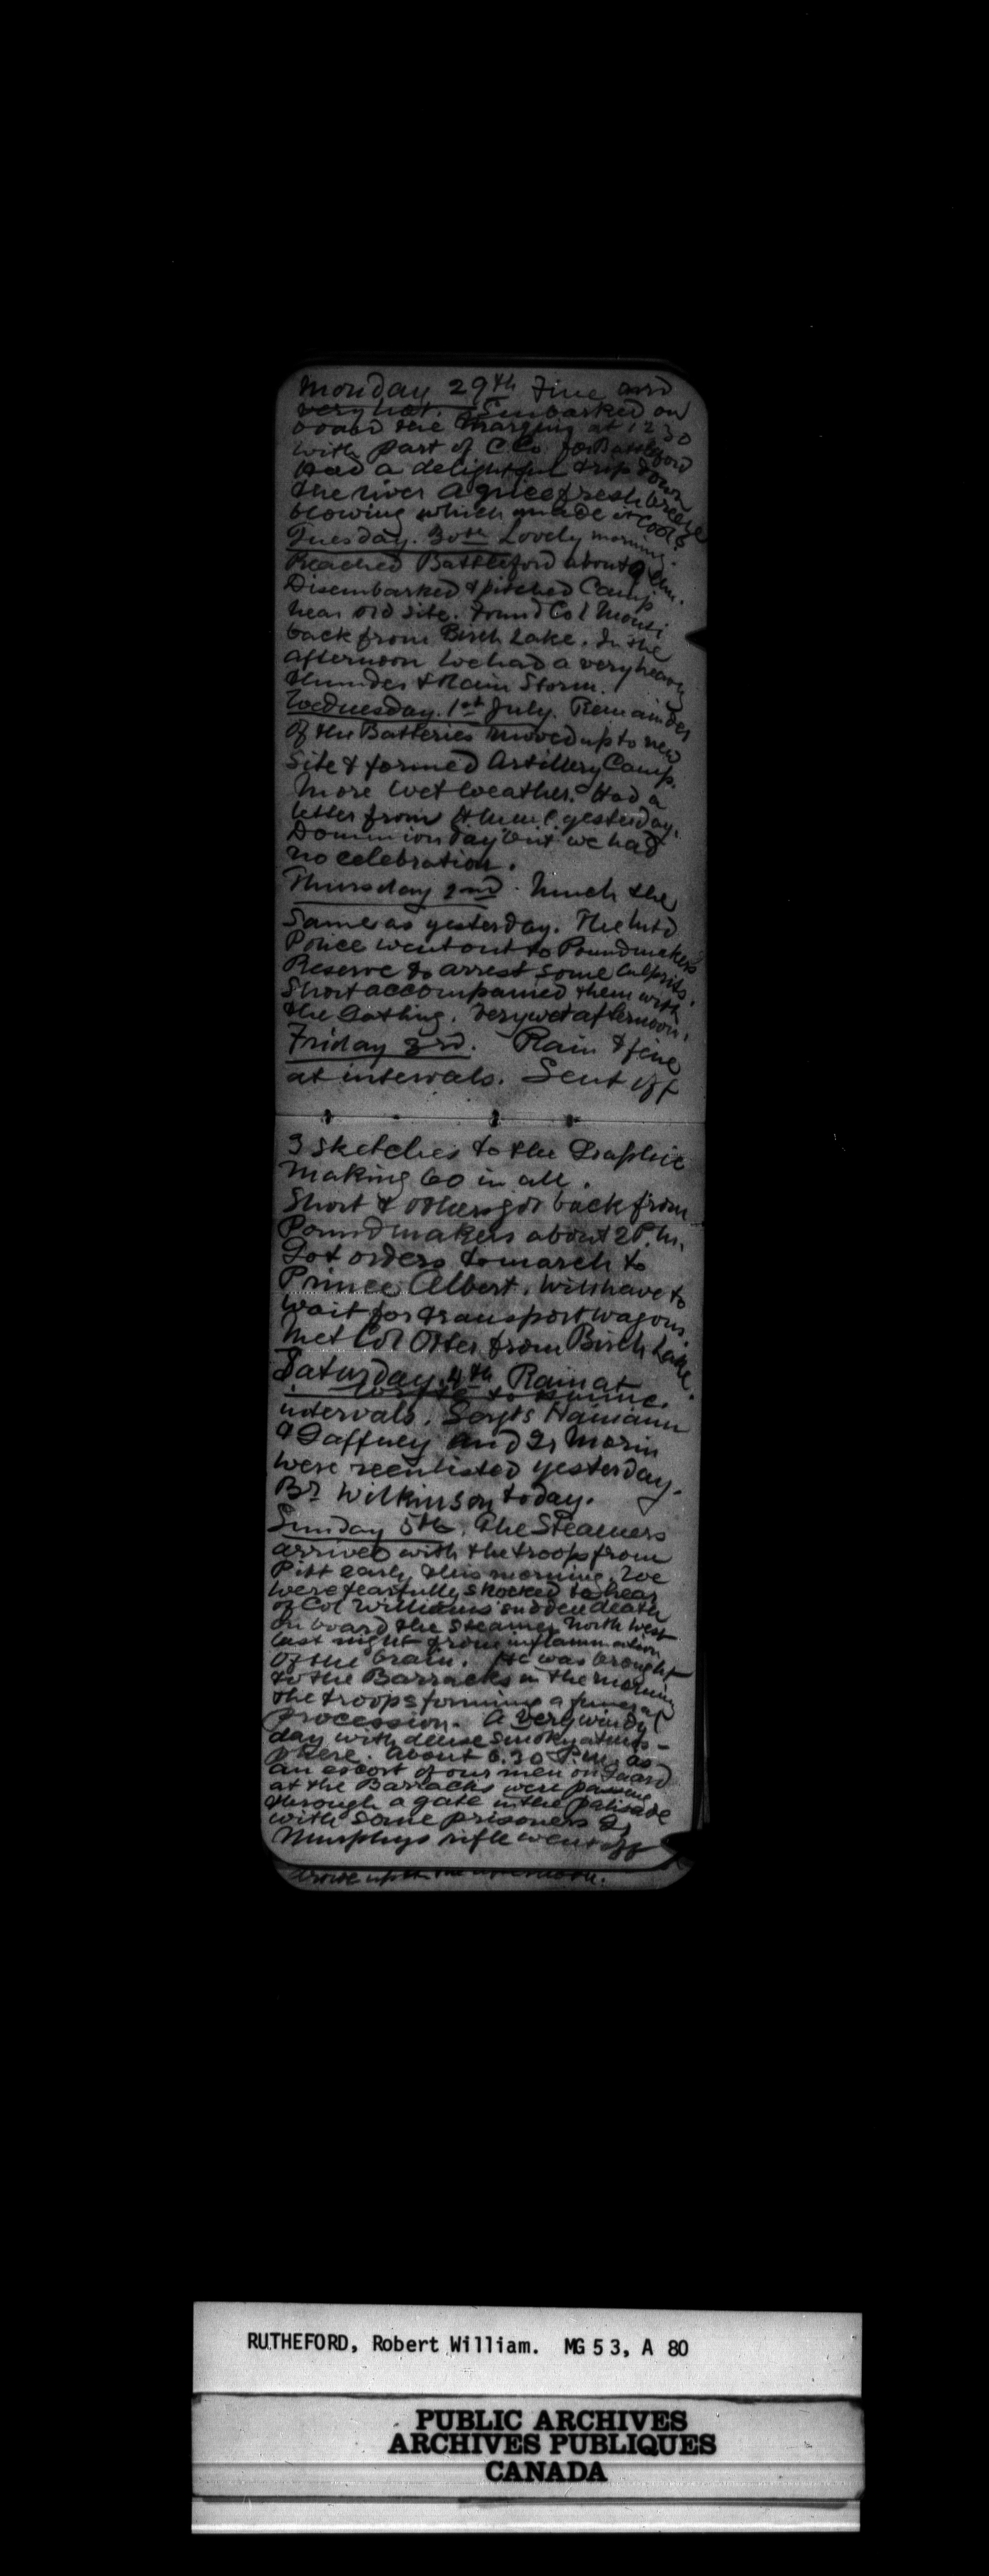 Monday 29th Fine and
very hot. Embarked on
board the Marquis at 12 30
with part of C Co for Battleford
Had a delightful trip down
the river A nice fresh breeze
blowing which made it cool.
Tuesday. 30th Lovely morning.
Reached Battleford about 9 Am.
Disembarked & pitched Camp
near old site. Found Col
back from Birch Lake. In the
afternoon we had a very heavy
thunder & Rain Storm.
Wednesday. 1st July. Remainder
of the Batteries moved up to new
Site & formed Artillery Camp.
More wet weather. Had a
letter from yesterday.
Dominion day but we had
no celebration.
Thursday 2nd. Much the
Same as yesterday. The Mtd
Police went out to Poundmakers
Reserve to arrest some Culprits.
Short accompanied them with
the Gatling. Very wet afternoon.
Friday 3rd. Rain & fine
at intervals. Sent off
3 sketches to the Graphic
making 60 in all.
Short & others got back from
Poundmakers about 2 P.m.
Got orders to march to
Prince Albert. Will have to
wait for transport wagons.
Met Col Otter from Birch Lake.
Saturday. 4th Rain at
intervals. Sergts Hamann
& Gaffney and Gr Morin
were reenlisted yesterday.
Br Wilkinson today.
Sunday 5th. The Steamers
arrived with the troops from
Pitt early this morning. We
were fearfully shocked to hear
of Col Williams sudden death
on board the Steamer North West
last night from inflammation
of the brain. He was brought
to the Barracks in the morning
the troops forming a funeral
procession. A very windy
day with dense smoky atmos-
phere. About 6.30 P.m. as
an escort of our men on Guard
at the Barracks were passing
through a gate in the palisade
with some prisoners Gr
Murphys rifle went off
RUTHEFORD, Robert William. MG 5 3, A 80
PUBLIC ARCHIVES
ARCHIVES PUBLIQUES
CANADA